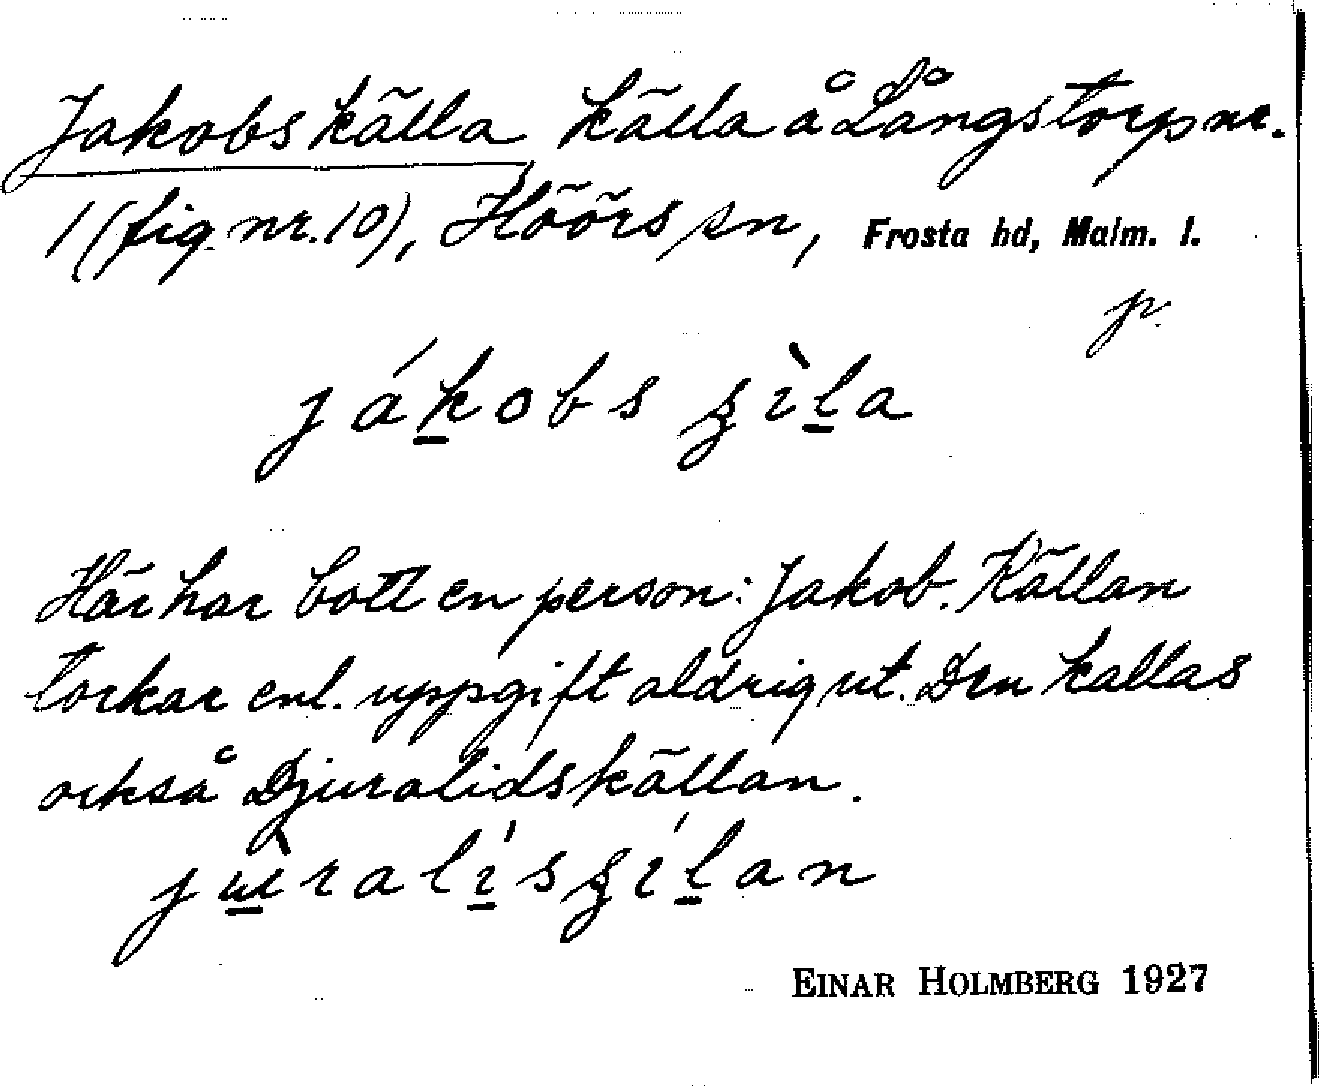 Jakobskälla källa å Långstorp nr.
1 (fig. nr. 10), Höörs sn, Frosta hd, Malm. l.
jákobs
Här har bott en person: Jakob. Källan
torkar enl. uppgift aldrig ut. Den kallas
också Djuralidskällan.
EINAR HOLMBERG 1927